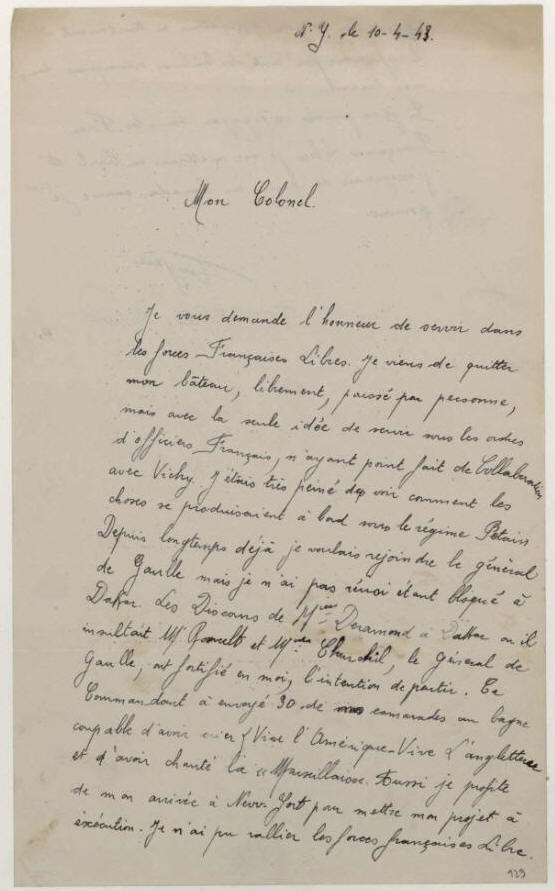 N. Y. le 10-4-43.
Mon Colonel.
Je vous demande l'honneur de servir dans
les forces Françaises Libres. Je viens de quitter
mon bâteau, librement, poussé par personne,
mais avec la seule idée de servir sous les ordres
d'officiers Français, n'ayant point fait de Collaboration
avec Vichy. J'étais très peiné de voir comment les
choses se produisaient à bord sous le régime Pétain
Depuis longtemps déjà je voulais rejoindre le général
de Gaulle mais je n'ai pas réussi étant bloqué à
Dakar. Les Discours de Mr à Dakar ou il
insultait Mr et Mr Churchil, le Général de
Gaulle, ont fortifié en moi, l'intention de partir. Ce
Commandant à envoyé 30 de camarades au bagne
coupable d'avoir crier { Vive l'Amérique-Vive L'angletterre
et d'avoir chanté la "Marseillaise. Aussi je profite
de mon arrivée à New-York pour mettre mon projet à
éxécution. Je n'ai pu rallier les forces françaises Libre.
129